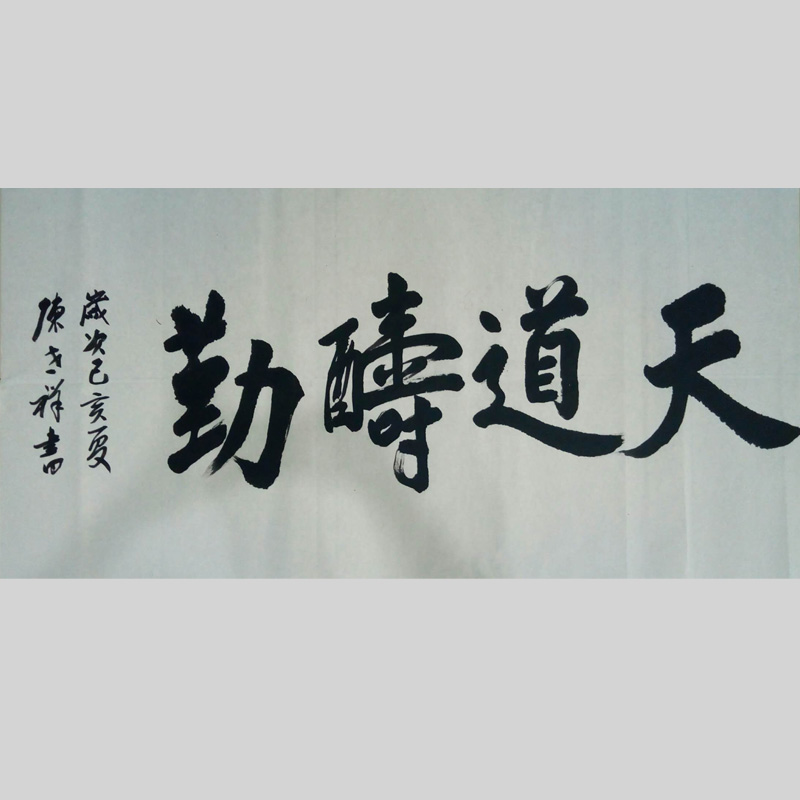 天道醻勤
歲次己亥夏
陳老祥書